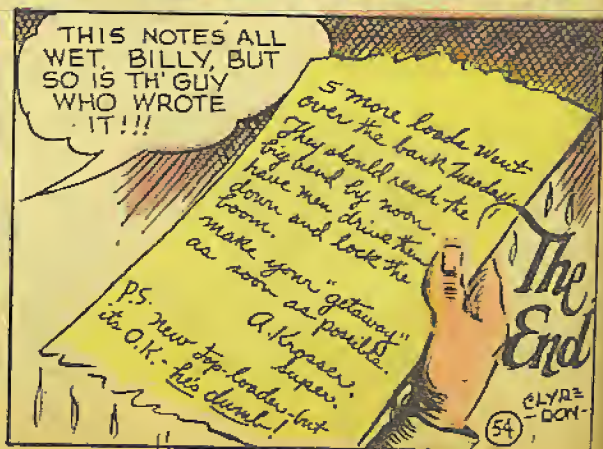 THIS NOTES ALL
WET, BILLY, BUT
SO IS TH' GUY
WHO WROTE
IT!!!
5 more loads went
over the bank Tuesday
They should reach the
big bend by noon.
have men drive them
down and lock the
boom.
make your "getaway"
as soon as posible.
A. Krosser.
super.
P.S. new top-loader-but
its O.K.- he's dumb!
The
End
CLYDE
-DON-
54